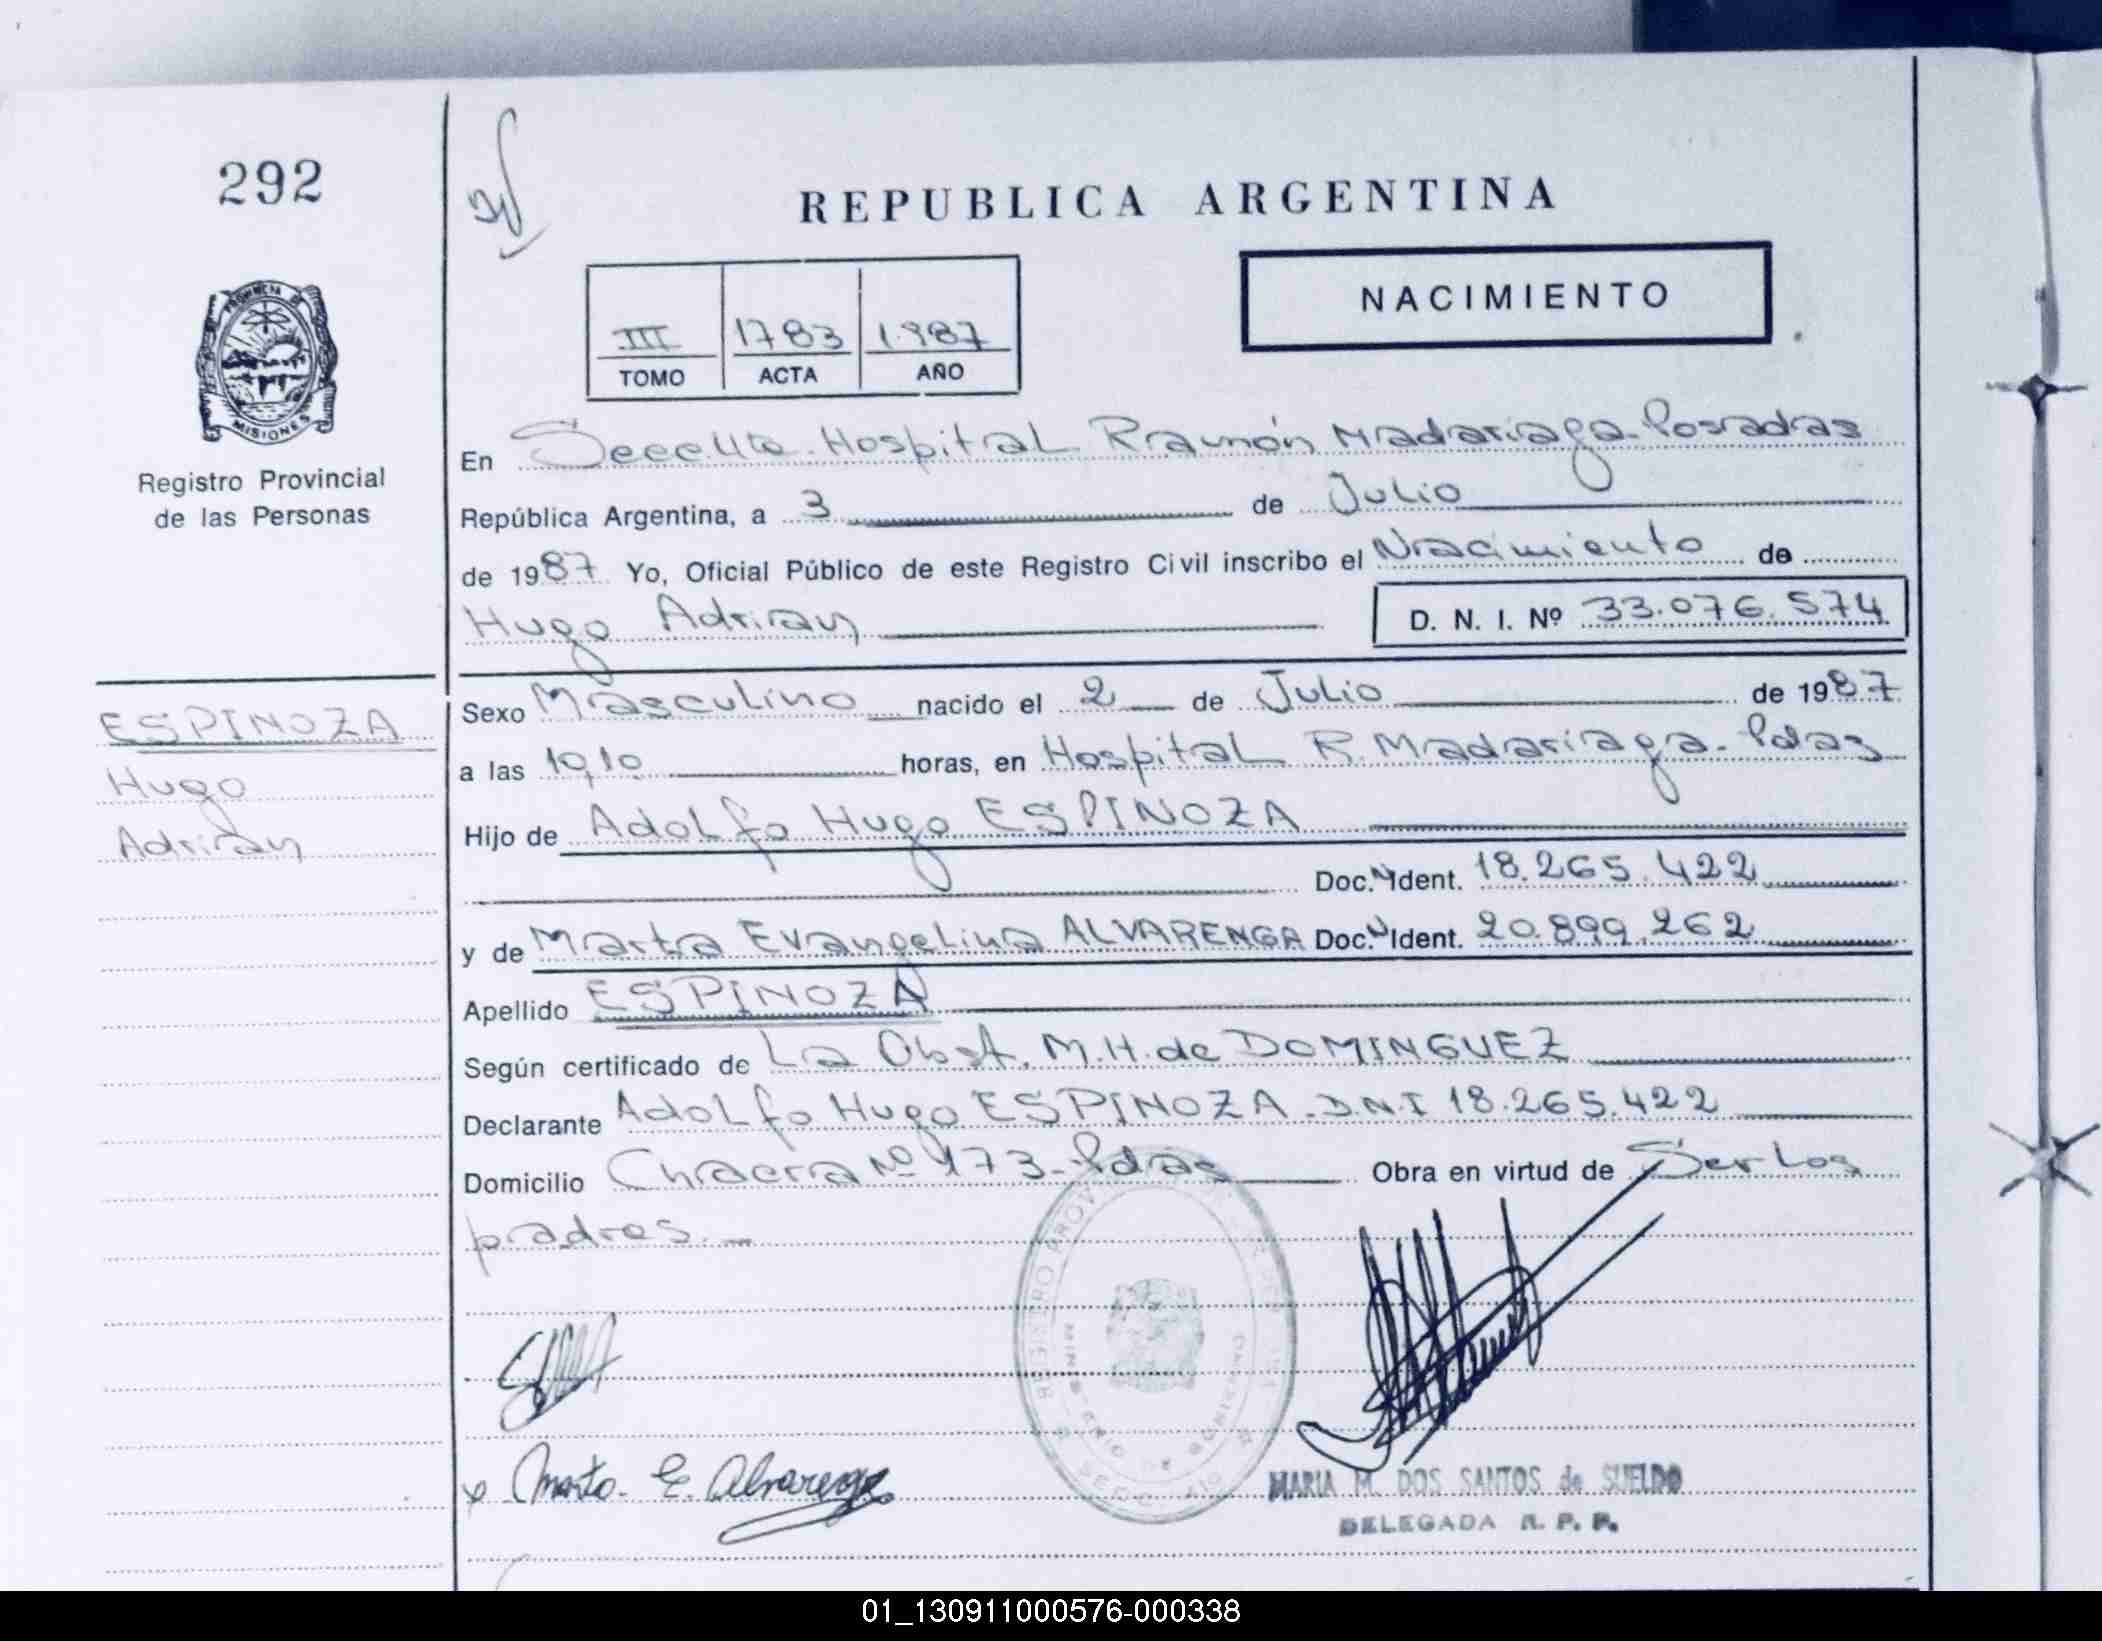 292
REPUBLICA ARGENTINA
NACIMIENTO
III 1783 1.987
TOMO ACTA AÑO
PROVINCIA DE
MISIONES
Registro Provincial
de las Personas
En Hospital Ramón Madariaga-Posadas
República Argentina, a 3 de Julio
de 1987 Yo, Oficial Público de este Registro Civil inscribo el Nacimiento de
Hugo Adrian D. N. I. Nº 33.076.574
ESPINOZA
Hugo
Adrian
Sexo Masculino nacido el 2 de Julio de 1987
a las horas, en Hospital R. Madariaga-Pdas
Hijo de Adolfo Hugo ESPINOZA
Doc. Ident. 18.265.422
y de Marta Evangelina ALVARENGA Doc. Ident. 20.899.262
Apellido ESPINOZA
Según certificado de La Obst. M.H. de DOMINGUEZ
Declarante Adolfo Hugo ESPINOZA. D.N.I 18.265.422
Domicilio Chacra Nº 173-Pdas Obra en virtud de Ser los
padres.-
Marta E. Alvarenga
MARIA M. DOS SANTOS de SUELDO
DELEGADA R. P. P.
01_130911000576-000338